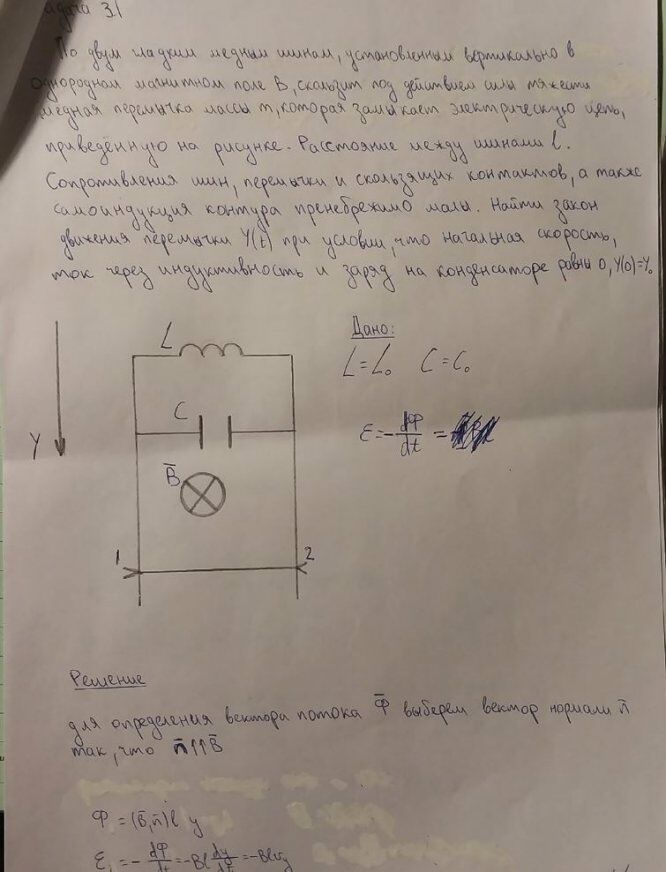 адача 3.1
По двум гладким медным шинам, установленным вертикально в
однородном магнитном поле B, скользит под действием силы тяжести
медная перемычка массы m, которая замыкает электрическую цепь,
приведённую на рисунке. Расстояние между шинами l.
Сопротивления шин, перемычки и скользящих контактов, а также
самоиндукция контура пренебрежимо малы. Найти закон
движения перемычки Y(t) при условии, что начальная скорость,
ток через индуктивность и заряд на конденсаторе равны 0, Y(0)=Y₀
L
Дано:
L=L₀ C=C₀
C
Y
ε=-dФ/dt =
B̄
1 2
Решение
для определения вектора потока Ф̄ выберем вектор нормали n̄
так, что n̄↑↑B̄
Ф=(B̄,n̄)l y
ε₁=-dФ/dt=-Bl dy/dt=-Blv_y